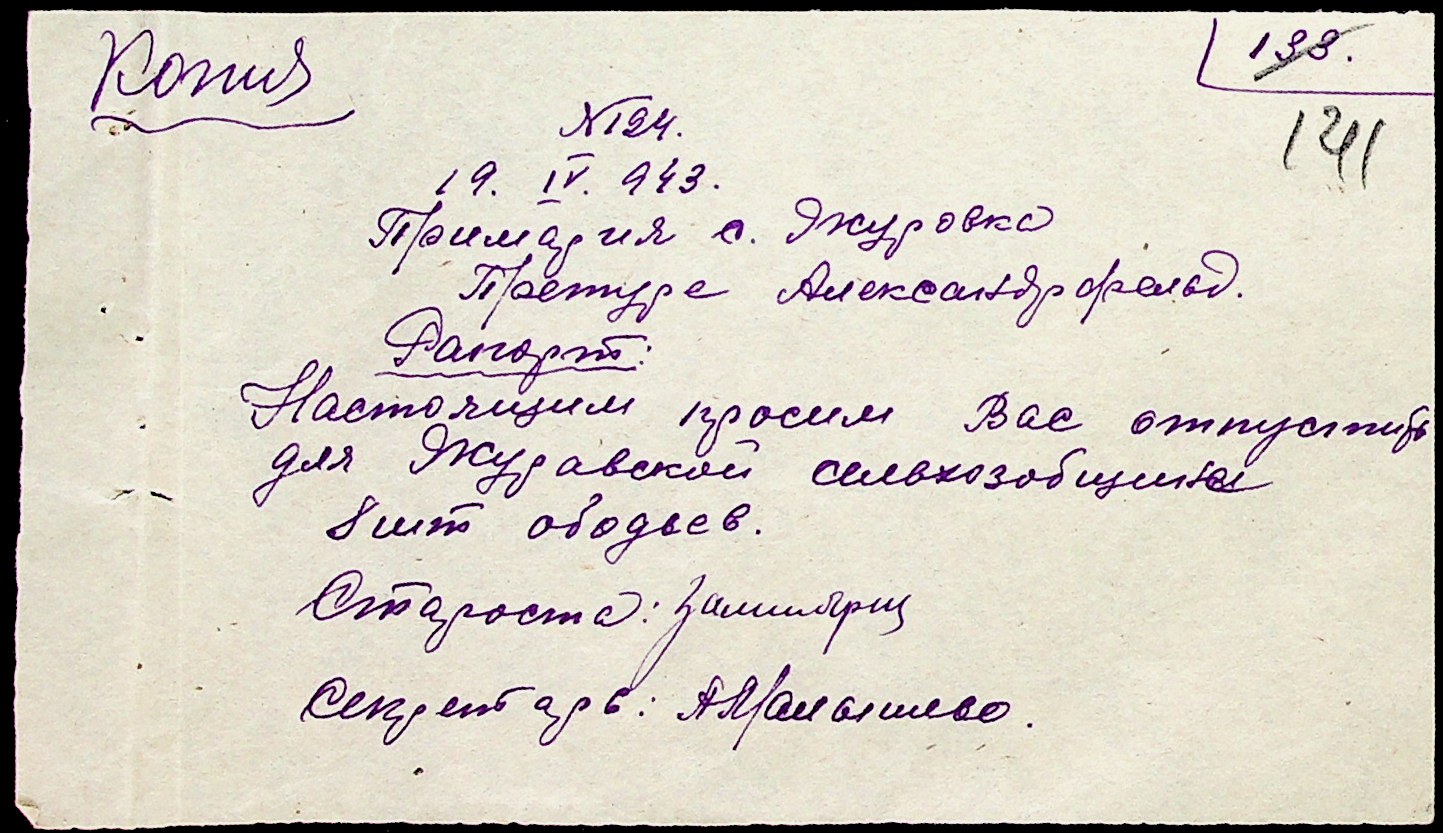 Копия
133.
141
N124.
19. IV. 943.
Примария с. Журовка
Претуре Александрфельд.
Рапорт:
Настоящим просим Вас отпустить
для Журавской сельхозобщины
8 шт ободьев.
Староста:
Секретарь: А Малышева.